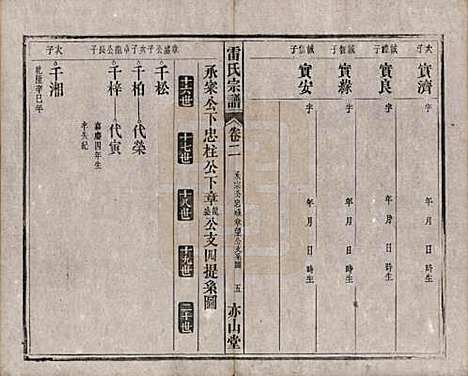 次子
實濟
字
年 月 日 時生
誠  子
實良
字
年 月 日 時生
誠  子
實綠
字
年 月 日 時生
誠  子
實安
字
年 月 日 時生
雷氏宗譜
卷二
五
亦山堂
承宗公下忠柱公下章 公支四提系圖
十六世
十七世
十八世
十九世
二十世
千松
千柏
代榮
千梓
代寅
嘉慶四年生
次子
千湘
乾隆辛巳年